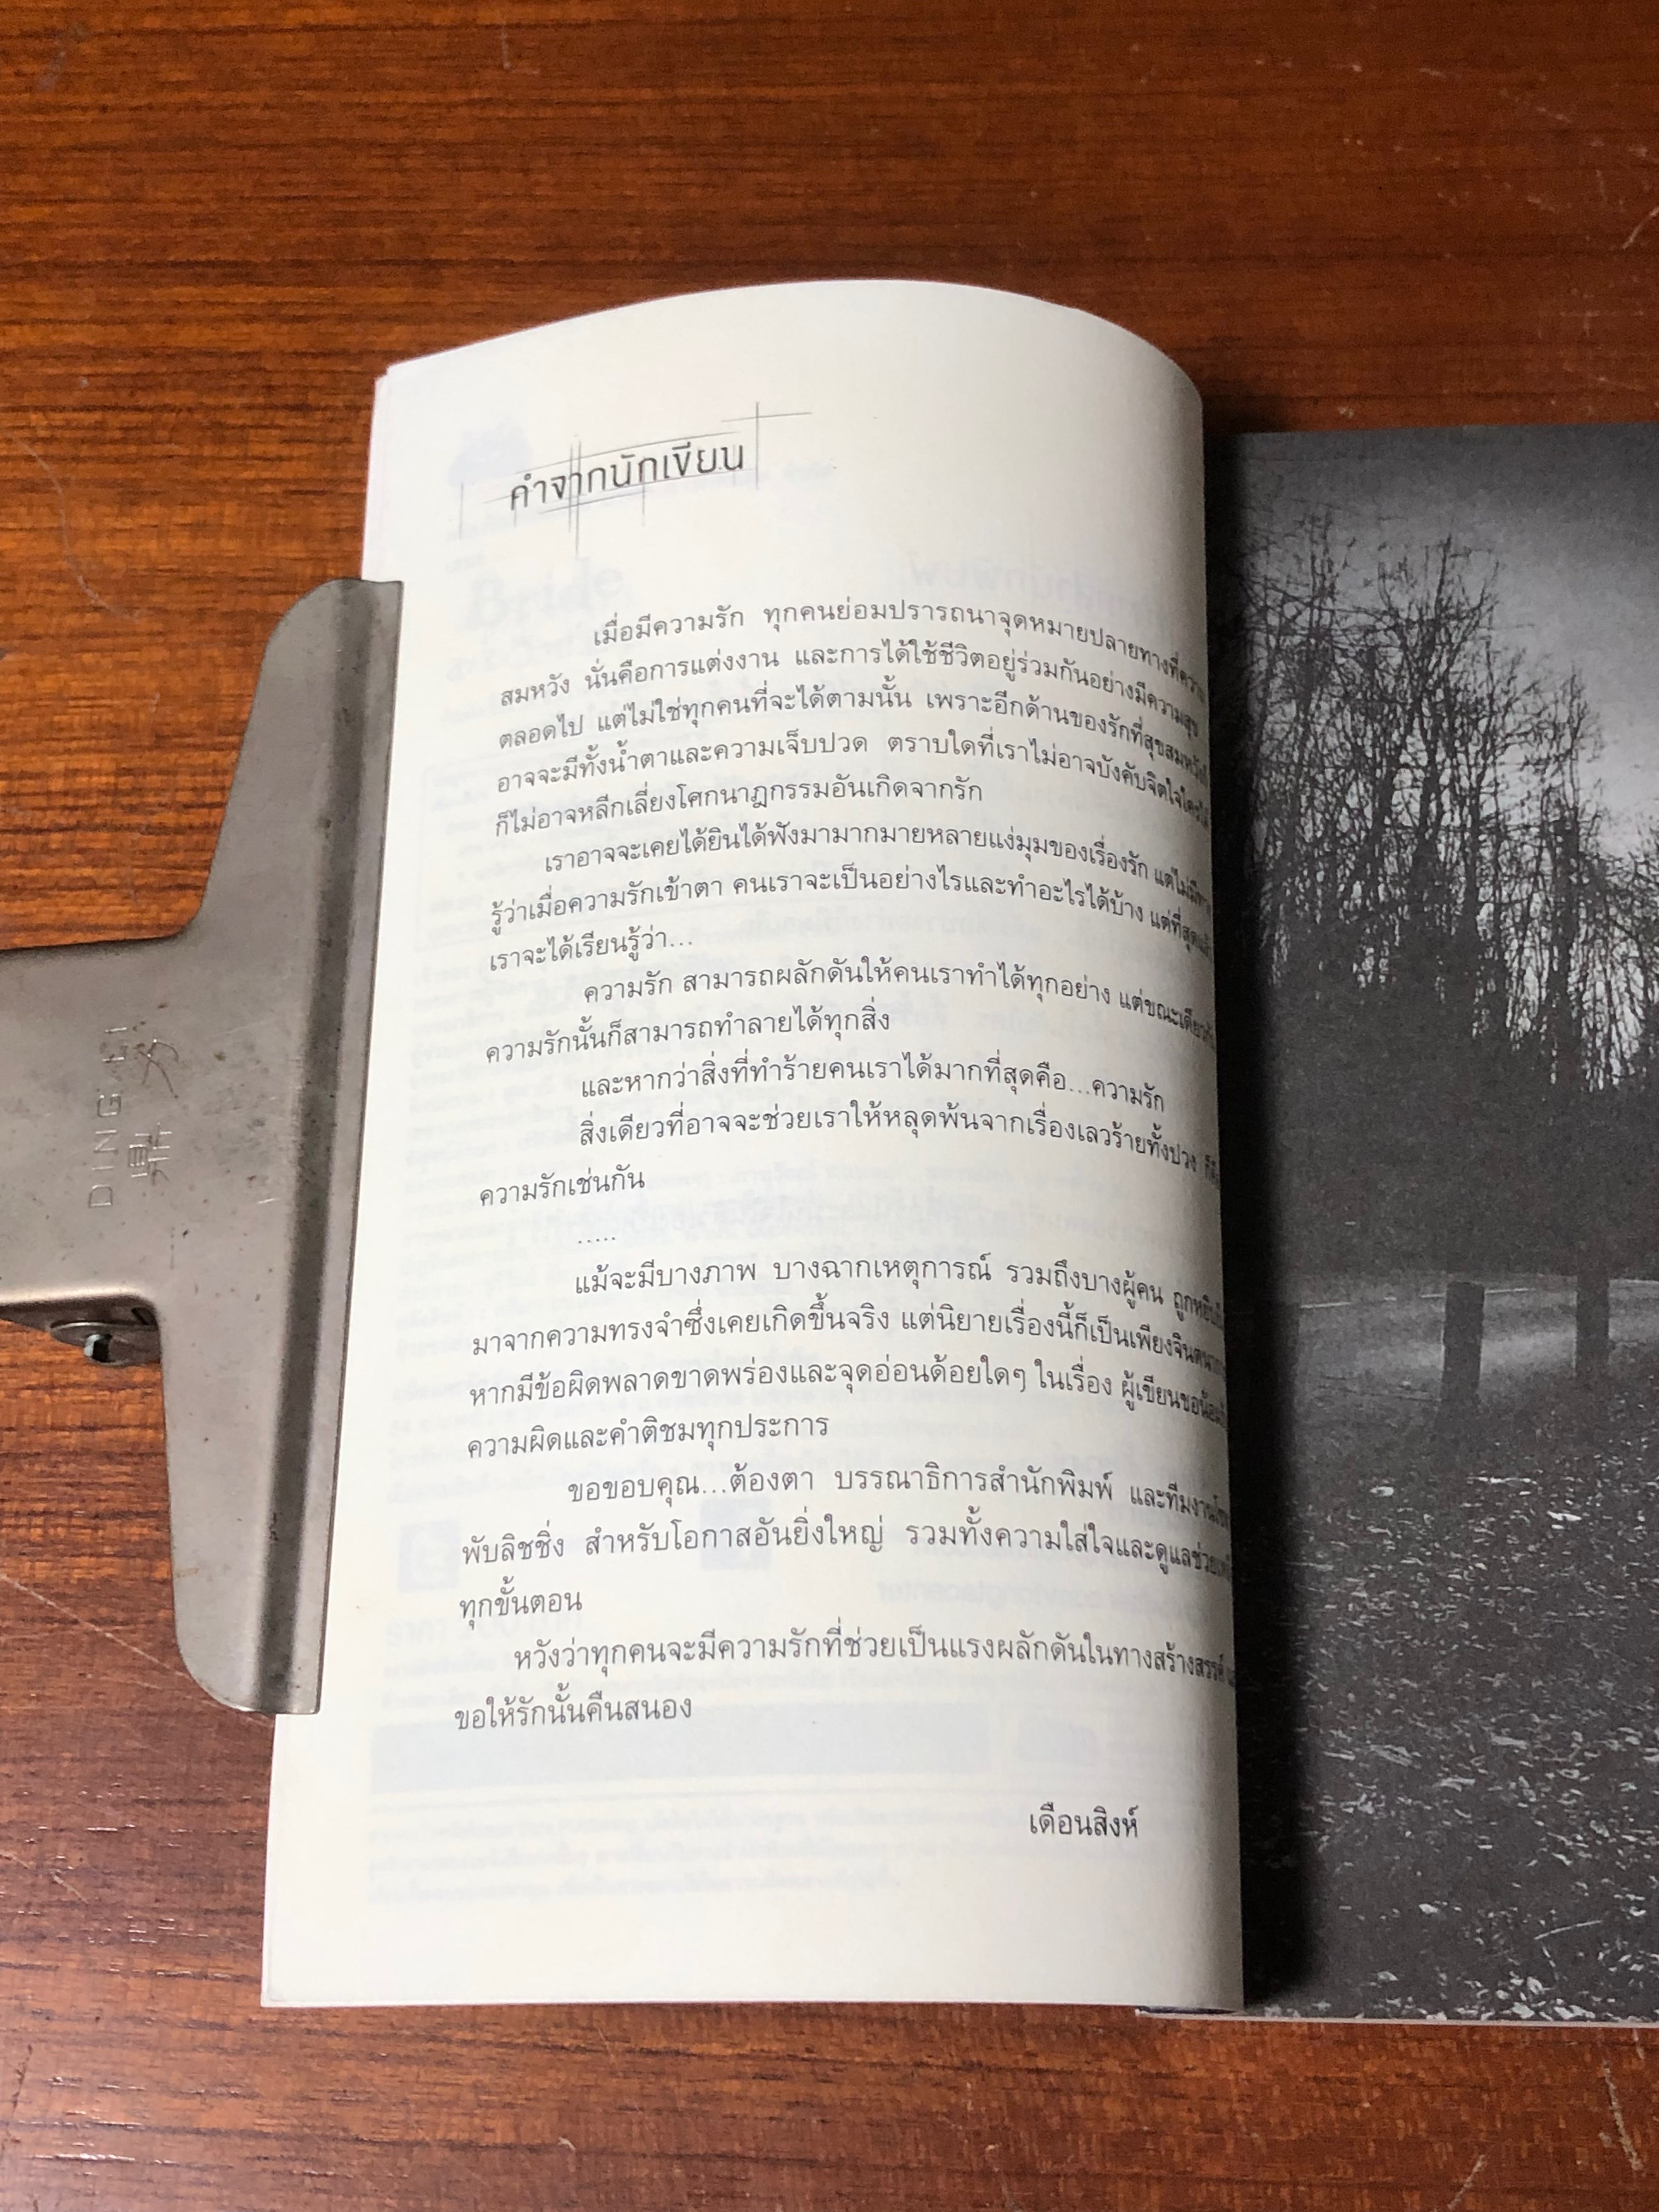 คำจากนักเขียน
เมื่อมีความรัก ทุกคนย่อมปรารถนาจุดหมายปลายทางที่ความ
สมหวัง นั่นคือการแต่งงาน และการได้ใช้ชีวิตอยู่ร่วมกันอย่างมีความสุข
ตลอดไป แต่ไม่ใช่ทุกคนที่จะได้ตามนั้น เพราะอีกด้านของรักที่สุขสมหวัง
อาจจะมีทั้งน้ำตาและความเจ็บปวด ตราบใดที่เราไม่อาจบังคับจิตใจ
ก็ไม่อาจหลีกเลี่ยงโศกนาฏกรรมอันเกิดจากรัก
เราอาจจะเคยได้ยินได้ฟังมามากมายหลายแง่มุมของเรื่องรัก แต่ไม่มี
รู้ว่าเมื่อความรักเข้าตา คนเราจะเป็นอย่างไรและทำอะไรได้บ้าง แต่ที่สุด
เราจะได้เรียนรู้ว่า...
ความรัก สามารถผลักดันให้คนเราทำได้ทุกอย่าง แต่ขณะเดียว
ความรักนั้นก็สามารถทำลายได้ทุกสิ่ง
และหากว่าสิ่งที่ทำร้ายคนเราได้มากที่สุดคือ...ความรัก
สิ่งเดียวที่อาจจะช่วยเราให้หลุดพ้นจากเรื่องเลวร้ายทั้งปวง
ความรักเช่นกัน
.....
แม้จะมีบางภาพ บางฉากเหตุการณ์ รวมถึงบางผู้คน
มาจากความทรงจำซึ่งเคยเกิดขึ้นจริง แต่นิยายเรื่องนี้ก็เป็นเพียง
หากมีข้อผิดพลาดขาดพร่องและจุดอ่อนด้อยใดๆ ในเรื่อง ผู้เขียนขอ
ความผิดและคำติชมทุกประการ
ขอขอบคุณ...ต้องตา บรรณาธิการสำนักพิมพ์ และทีมงาน
พับลิชชิ่ง สำหรับโอกาสอันยิ่งใหญ่ รวมทั้งความใส่ใจและดูแล
ทุกขั้นตอน
หวังว่าทุกคนจะมีความรักที่ช่วยเป็นแรงผลักดันในทางสร้างสรรค์
ขอให้รักนั้นคืนสนอง
เดือนสิงห์
DING LI